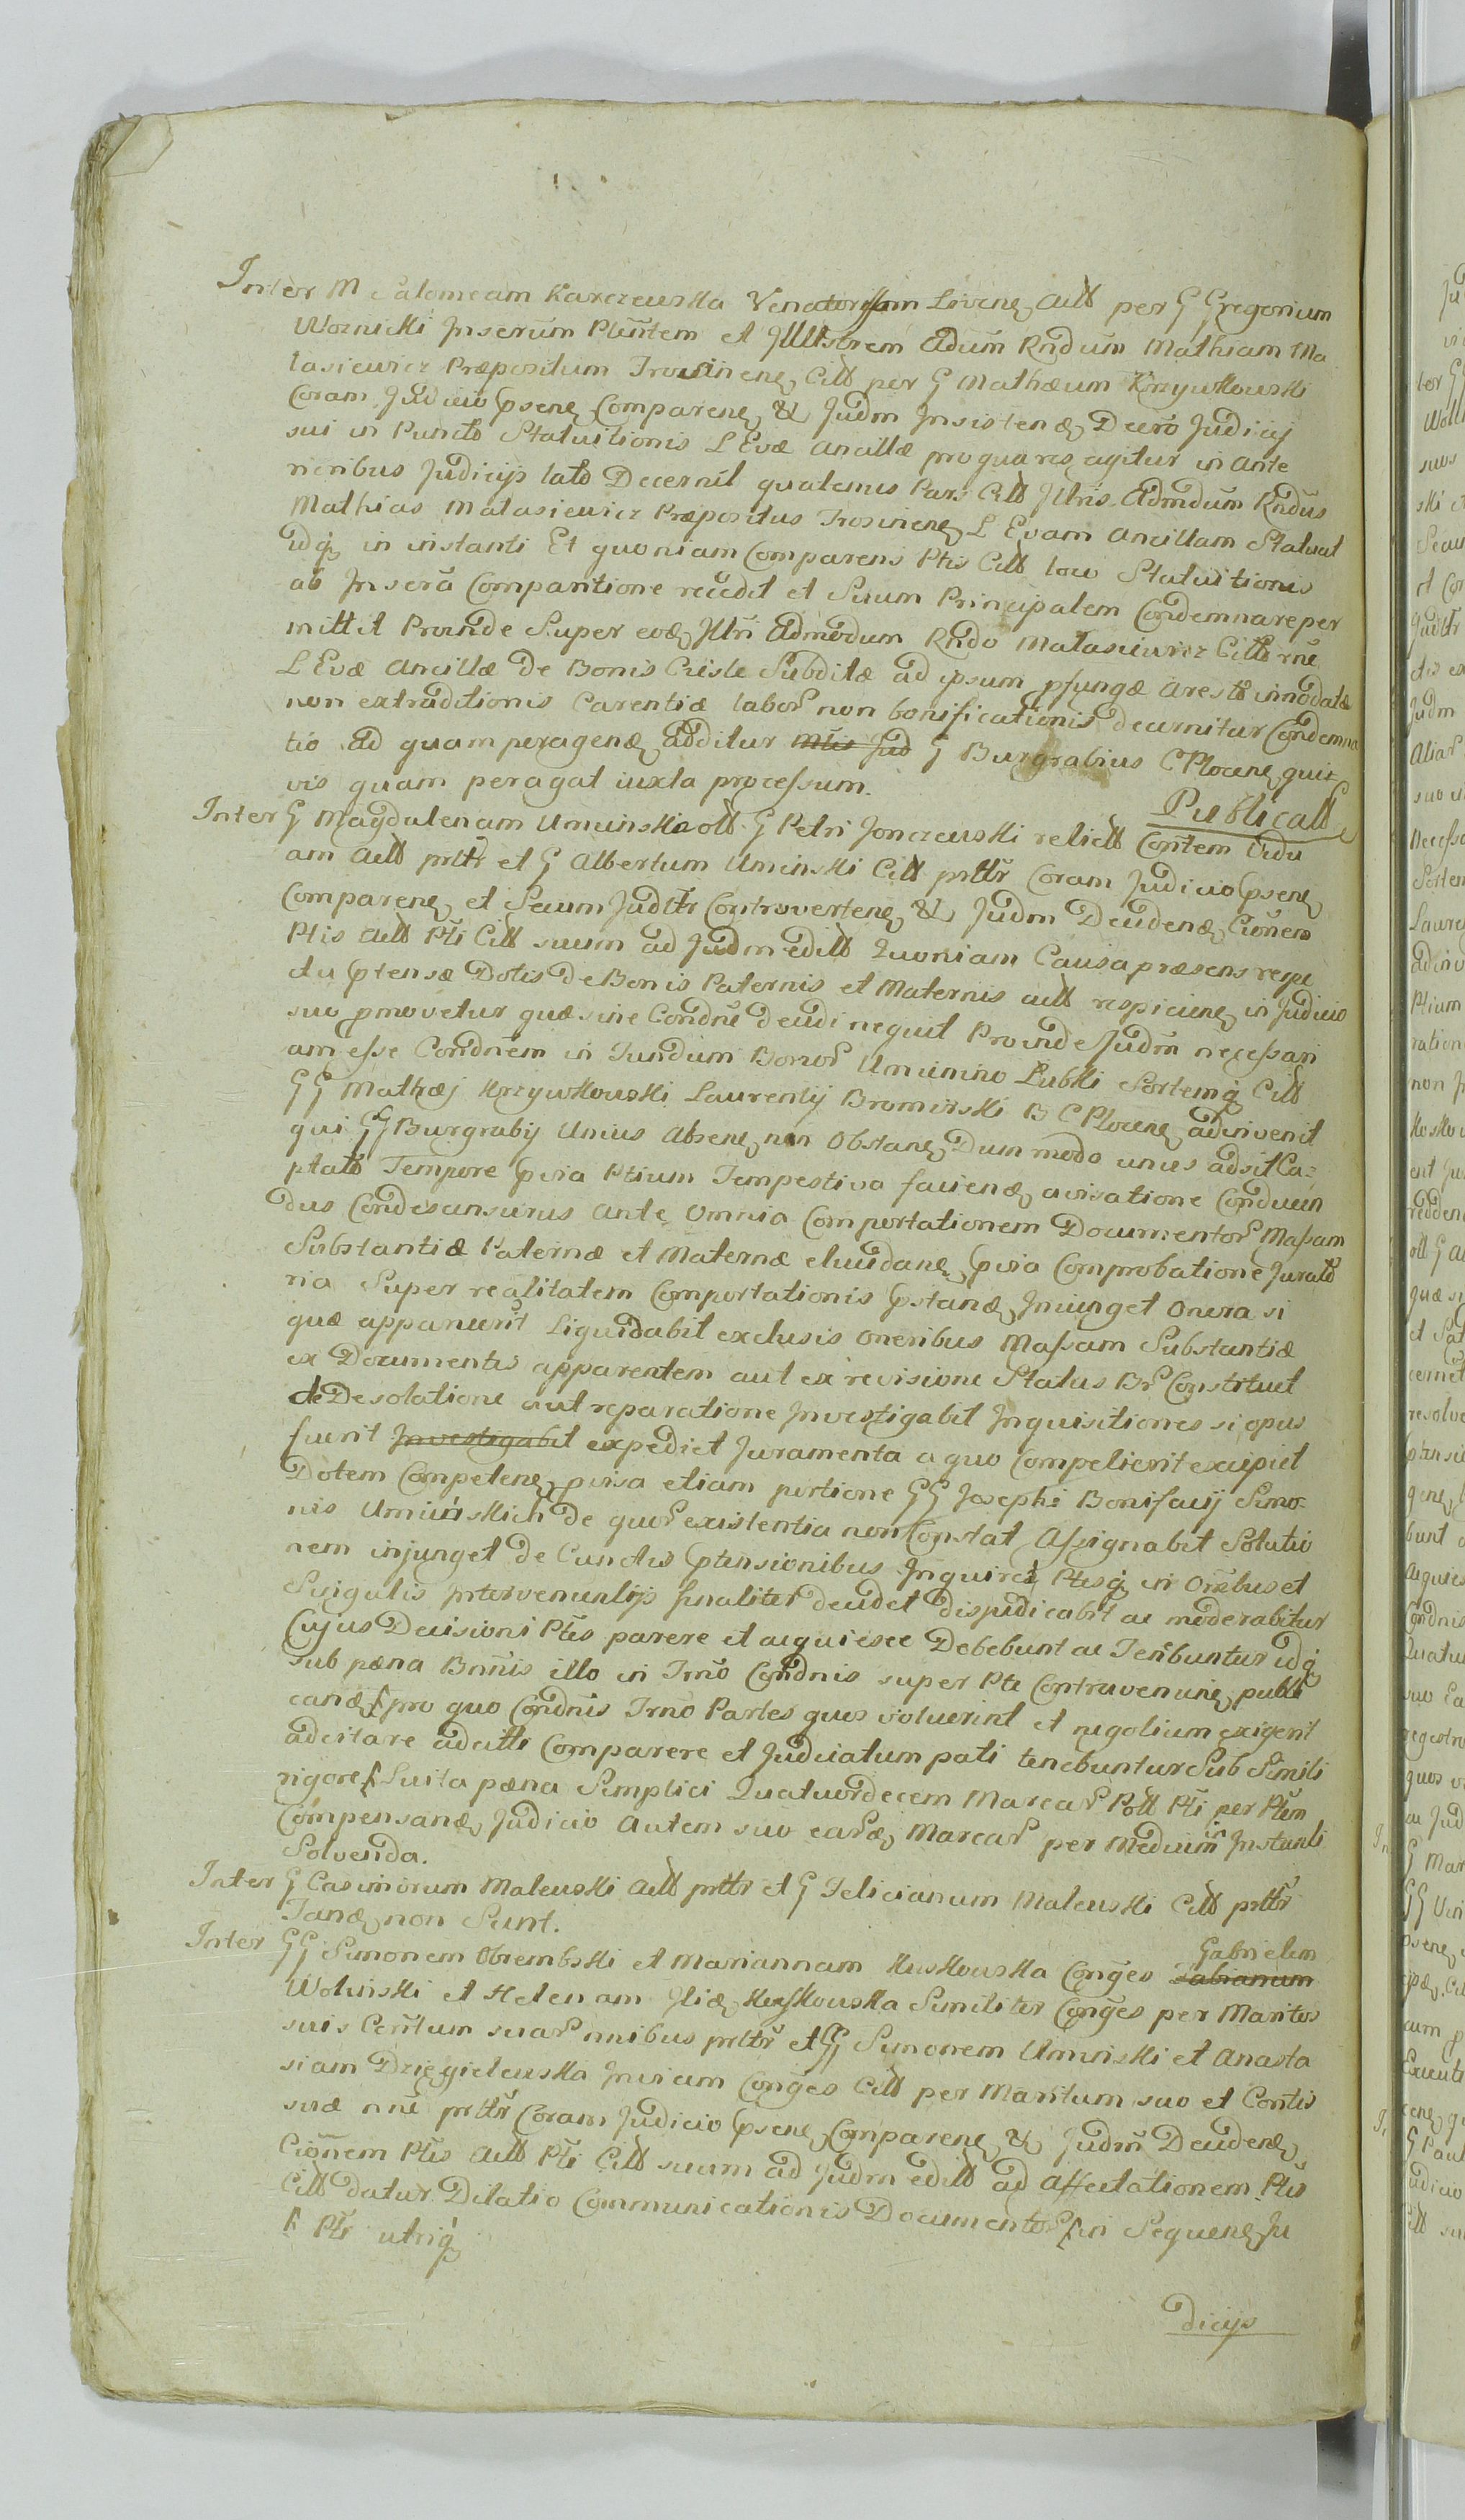 Inter M Salomeam Karczewska Venatorissam Livenȩ Actt per G Gregorium
Woznicki Inserūm Plentem et Illustrem Adūm Rndūm Mathiam Ma
tasiewicz Præpositum Troszinenȩ Citt per G Mathæum Krzywkowski
Coram Judicio Psenȩ Comparenȩ & Judm Insistendȩ Decro Judicij
sui in Puncto Statuitionis L Evæ Ancillæ pro qua res agitur in Ante
rioribus Judicijs lato Decernit quatenus Pars Citt Illris Admdum Rndus
Mathias Matasiewicz Præpositus Troszinenȩ L Evam Ancillam Statuat
idq in instanti Et quoniam Comparens Ptis Citt loco Statuitionis
ab Insera Comparitione recedit et Suum Principalem Condemnare per
mittit Proinde Super eodȩ Illri Admodum Rndo Matasiewicz Citto rne
L Evæ Ancillæ De Bonis Cieśle Subditæ ad ipsum pfungæ Aresto innodatæ
non extraditionis Carentiæ labor non bonificationis decernitur Condemna
tio Ad quam peragendȩ additur Mtis Jud G Burgrabius C Plocenȩ quis
vis quam peragat iuxta processum.
Publicatt
Inter G Magdalenam Uminska ott G Petri Jonczewski relictt Contem Vidu
am Actt prttr et G Albertum Uminski Citt prttr Coram Judicio Psenȩ
Comparenȩ et Secum Judttr Controvertenȩ & Judm Decidendȩ Cionem
Ptis Actt Pti Citt suum ad Judm editt Quoniam Causa præsens respe
ctu Ptensæ Dotis de Bonis Paternis et Maternis actt respicienȩ in Judicio
suo pmovetur quæ sine Condne decidi nequit Proinde Judm necessari
am esse Condnem in Fundum Bonor Umienino Łubki Sortemq Citt
GG Mathæj Krzywkowski Laurentij Bromirski B C Plocenȩ adinvenit
qui GG Burgrabij Unius Absenȩ non Obstanȩ Dum modo unus adsit Ca-
ptato Tempore pvia Ptium Tempestiva faciendȩ avisatione Conducen
dus Condescensurus Ante Omnia Comportationem Documentor Massam
Substantiæ Paternæ et Maternæ elucidanȩ pvia Comprobatione Jurato
ria Super realitatem Comportationis Pstandȩ Iniunget Onera si
quæ apparuerit Liquidabit exclusis oneribus Massam Substantiæ
ex Documentis apparentem aut ex revisione Status Br Constituet
de Desolatione aut reparatione Investigabit Inquisitiones si opus
fuerit Investigabit expediet Juramenta a quo Compelierit excipiet
Dotem Competenȩ pvisa etiam portione GG Josephi Bonifacij Simo-
nis Uminskich de quor existentia non Constat Assignabit Solutio
nem injunget de Cunctis Ptensionibus Inquiret Ptesq in Omibus et
Singulis Intervenientijs finaliter decidet disjudicabit ac moderabitur
Cujus Decisioni Ptes parere et acquiesce Debebunt ac Tenebuntur idq
sub pæna Bnnis illo in Trno Condnis super Pte Contravenienȩ publi
candȩ pro quo Condnis Trno Partes quos voluerint et negotium exigerit
adcitare adcitti Comparere et Judicatum pati tenebuntur Sub Simili
rigore Luita pæna Simplici Quatuordecem Marcar Pott Pti per Ptem
Compensandȩ Judicio Autem suo earȩ Marcar per Medium in Instanti
Solvenda.
Inter G Casimirum Malewski Actt prttr et G Felicianum Malewski Citt prttr
Tandȩ non Sunt.
Inter GG Simonem Obrembski et Mariannam Kuskowska Conges Gabrielem Fabianum
Wolinski et Helenam Iliȩ Kuskowska Similiter Conges per Maritos
suis Centum suar nnibus prttr et GG Simonem Uminski et Anasta
siam Dzięgielewska Invicem Conges Citt per Maritum suo et Contis
suæ nne prttr Coram Judicio Psenȩ Comparenȩ & Judm Decidendȩ
Cionem Ptis Actt Pti Citt suum ad Judm editt ad Affectationem Ptis
Citt datur Dilatio Communicationis Documentor in Sequenȩ Ju
Pti utriq
dicijs